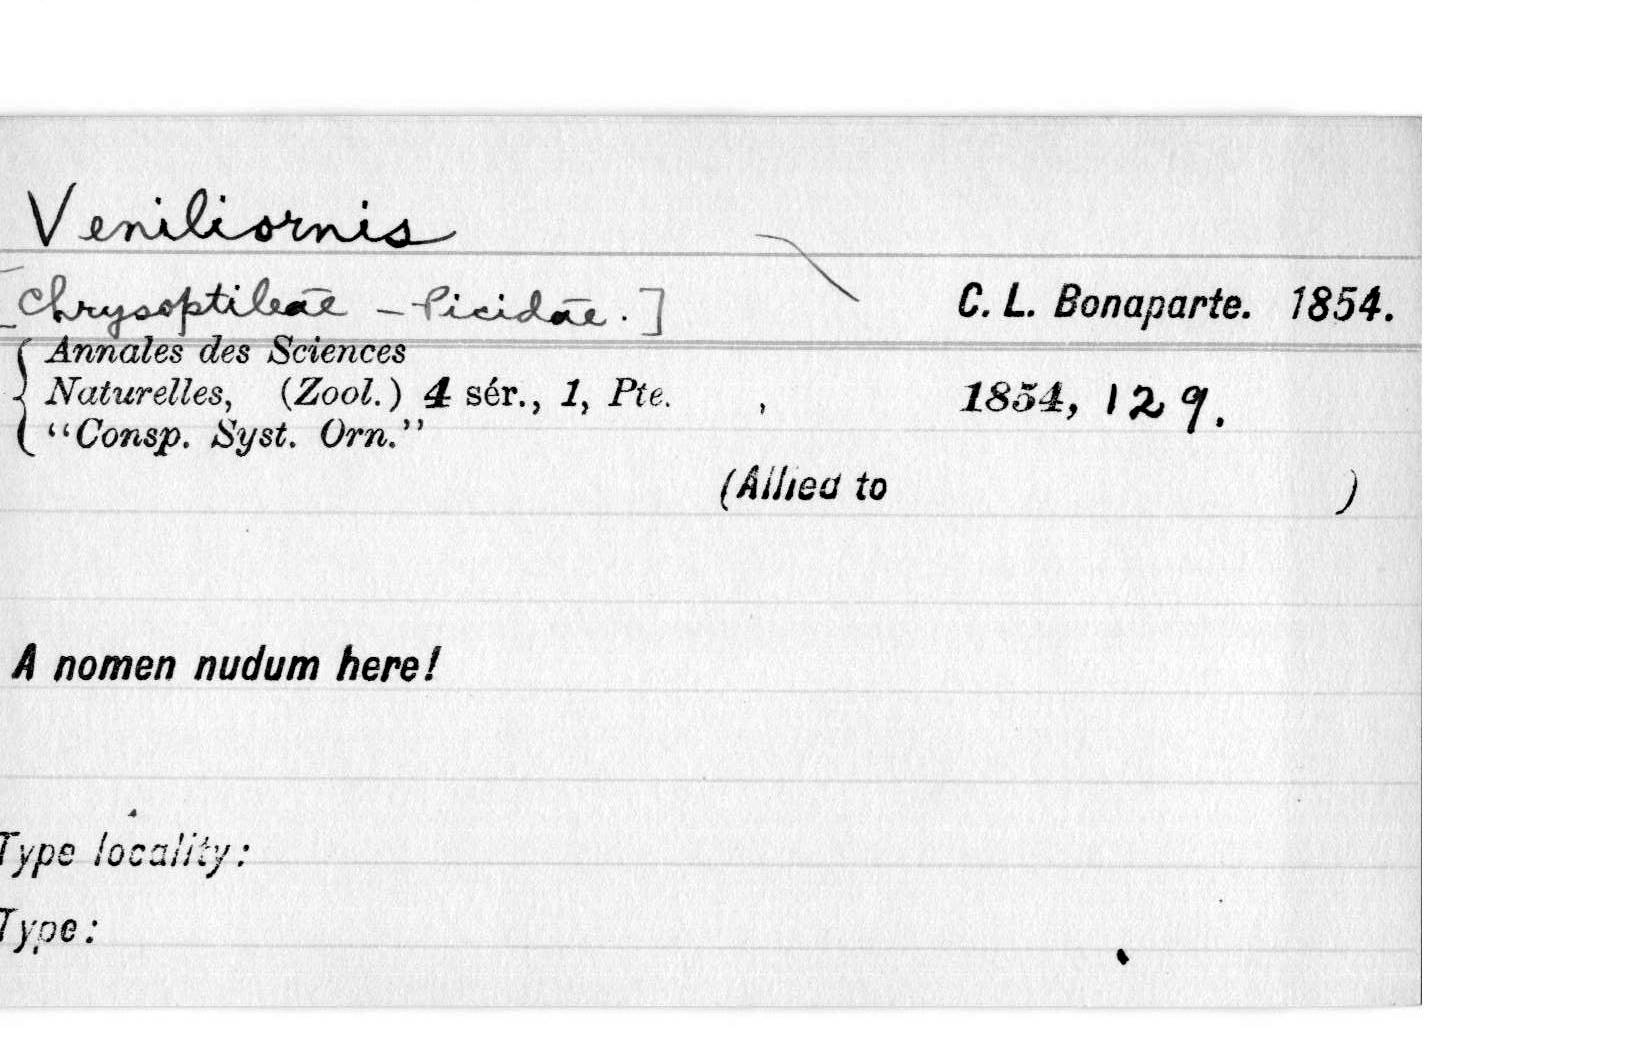 Veniliornis
[Chrysoptileae - Picidae.] C. L. Bonaparte. 1854.
Annales des Sciences
Naturelles, (Zool.) 4 sér., 1, Pte. , 1854, 129.
"Consp. Syst. Orn."
(Allied to )
A nomen nudum here!
Type locality:
Type: